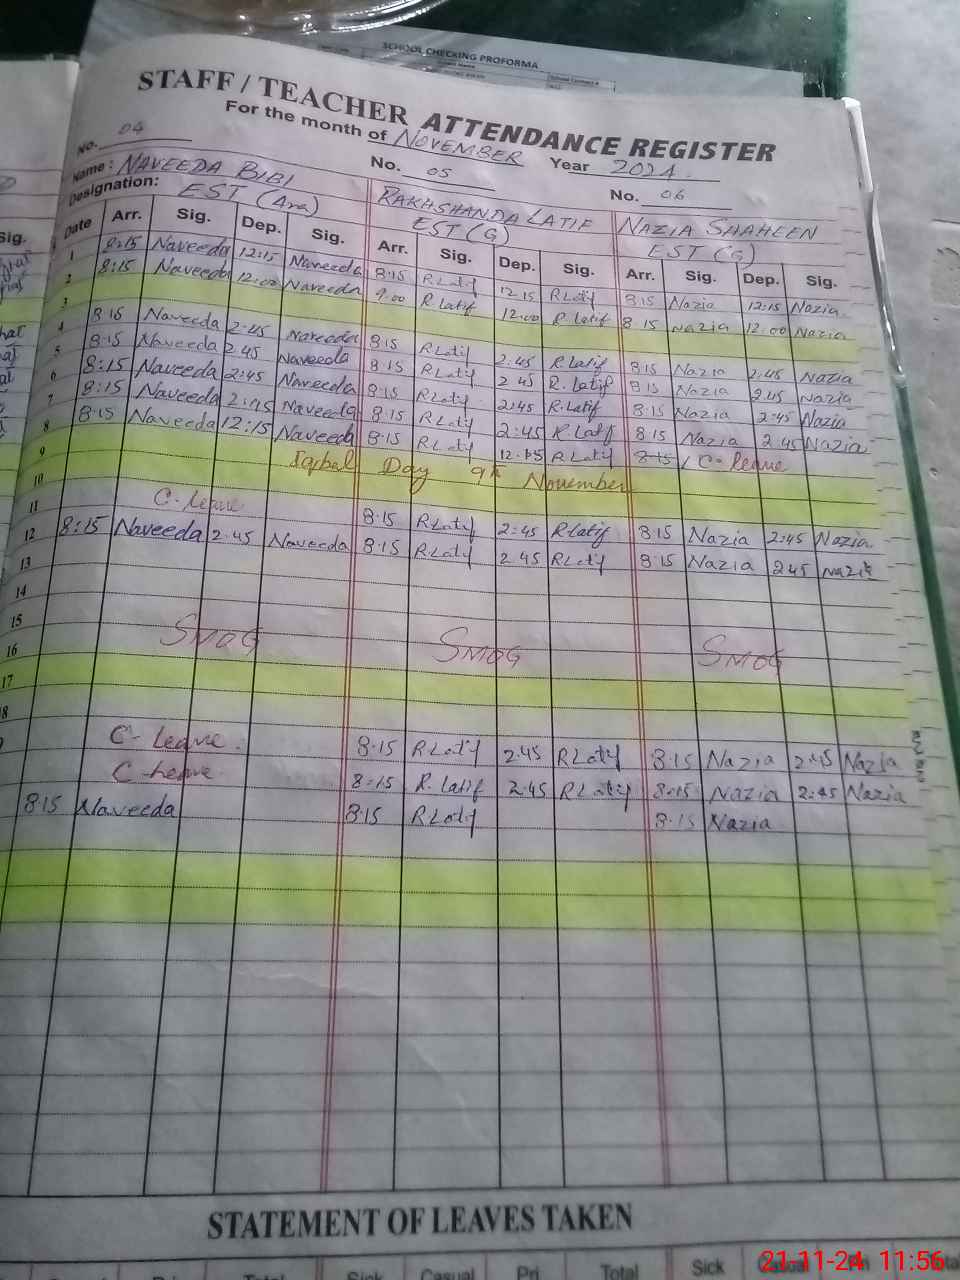 SCHOOL CHECKING PROFORMA
STAFF / TEACHER ATTENDANCE REGISTER
For the month of NOVEMBER Year 2024
No. 04 No. 05 No. 06
Name: NAVEEDA BIBI RAKHSHANDA LATIF NAZIA SHAHEEN
Designation: EST (Ara) EST (G) EST (G)
Date Arr. Sig. Dep. Sig. Arr. Sig. Dep. Sig. Arr. Sig. Dep. Sig.
1 8:15 Naveeda 12:15 Naveeda 8:15 R Latif 12:15 R Latif 8:15 Nazia 12:15 Nazia
2 8:15 Naveeda 12:00 Naveeda 9.00 R Latif 12:00 R Latif 8:15 Nazia 12:00 Nazia
3
4 8:15 Naveeda 2:45 Naveeda 8:15 R Latif 2:45 R Latif 8:15 Nazia 2:45 Nazia
5 8:15 Naveeda 2.45 Naveeda 8:15 R Latif 2 45 R. Latif 8:15 Nazia 2:45 Nazia
6 8:15 Naveeda 2:45 Naveeda 8:15 R Latif 2:45 R.Latif 8:15 Nazia 2:45 Nazia
7 8:15 Naveeda 2:45 Naveeda 8:15 R Latif 2:45 R Latif 8:15 Nazia 2:45 Nazia
8 8:15 Naveeda 12:15 Naveeda 8:15 R Latif 12:15 R Latif 8:15 C-leave
9 Iqbal Day 9th November
10
11 C-leave 8:15 R Latif 2:45 R Latif 8:15 Nazia 2:45 Nazia
12 8:15 Naveeda 2:45 Naveeda 8:15 R Latif 2:45 R Latif 8:15 Nazia 2:45 Nazia
13
14
15
SMOG SMOG SMOG
16
17
8
C-leave 8:15 R Latif 2.45 R Latif 8:15 Nazia 2:45 Nazia
C-leave 8:15 R. Latif 2:45 R Latif 8:15 Nazia 2:45 Nazia
8:15 Naveeda 8:15 R Latif 8:15 Nazia
STATEMENT OF LEAVES TAKEN
Total Sick Casual Pri Total Sick Casual
21-11-24 11:56